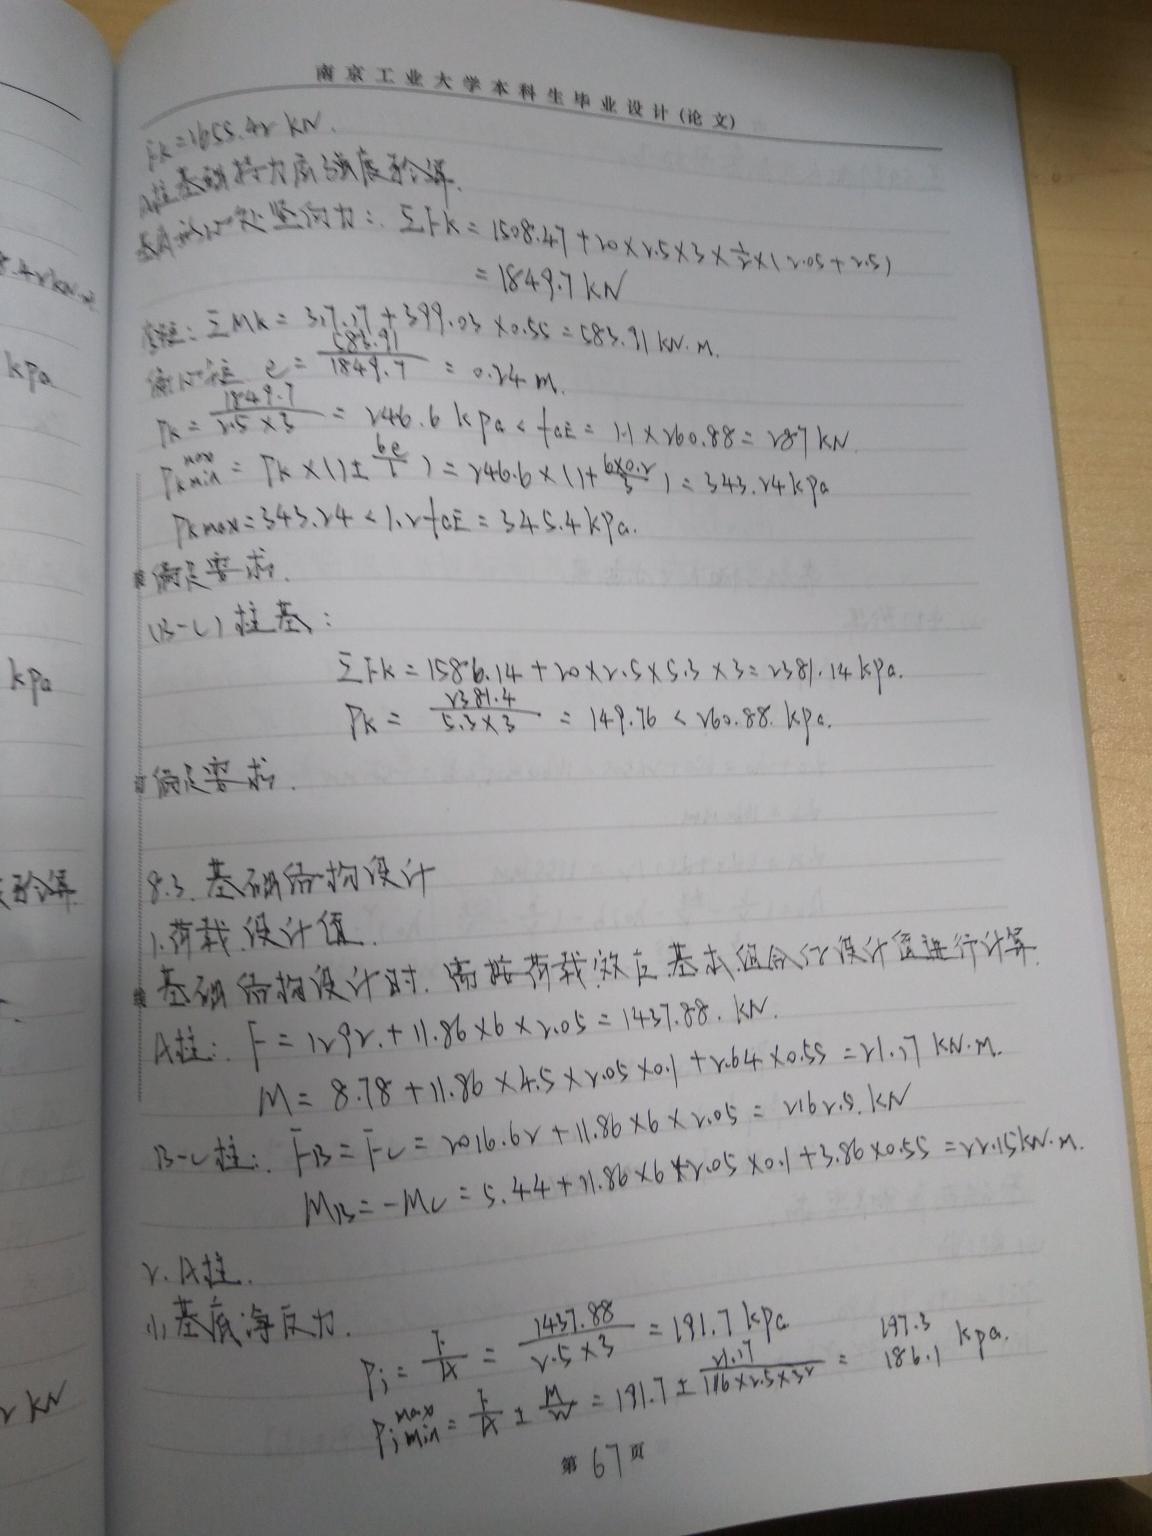 南京工业大学本科生毕业设计(论文)
Fk=1655.42 kN.
A柱基础持力层强度验算.
基底形心处竖向力: ΣFk=1508.47+20×2.5×3×½×(2.05+2.5)
=1849.7 kN
ΣMk= 317.17+399.03×0.55=583.91 kN·m.
偏心距 e=583.91/1849.7=0.24 m.
Pk=1849.7/2.5×3=246.6 kPa<faE=1.1×260.88=287 kN.
Pkmax min=Pk×(1±6e/l)=246.6×(1+6×0.2/3)=343.24 kPa
Pkmax=343.24<1.2faE=345.4 kPa.
满足要求.
(B-C)柱基:
ΣFk=1586.14+20×2.5×5.3×3=2381.14 kPa.
Pk=2381.4/5.3×3=149.76<260.88 kPa.
满足要求.
8.3.基础结构设计
1.荷载设计值.
基础结构设计时,需按荷载效应基本组合的设计值进行计算.
A柱: F=1292.+11.86×6×2.05=1437.88. kN.
M=8.78+11.86×4.5×2.05×0.1+2.64×0.55=21.17 kN·m.
B-C柱: FB=FC=2016.62+11.86×6×2.05=2162.5. kN
MB=-MC=5.44+11.86×6×2.05×0.1+3.86×0.55=22.15kN·m.
2.A柱.
(1)基底净反力.
Pj=F/A=1437.88/2.5×3=191.7 kPa
Pjmax min=F/A±M/W=191.7±21.17/1/6×2.5×3²=197.3 186.1 kPa.
第67页
kPa
kPa
验算.
kN